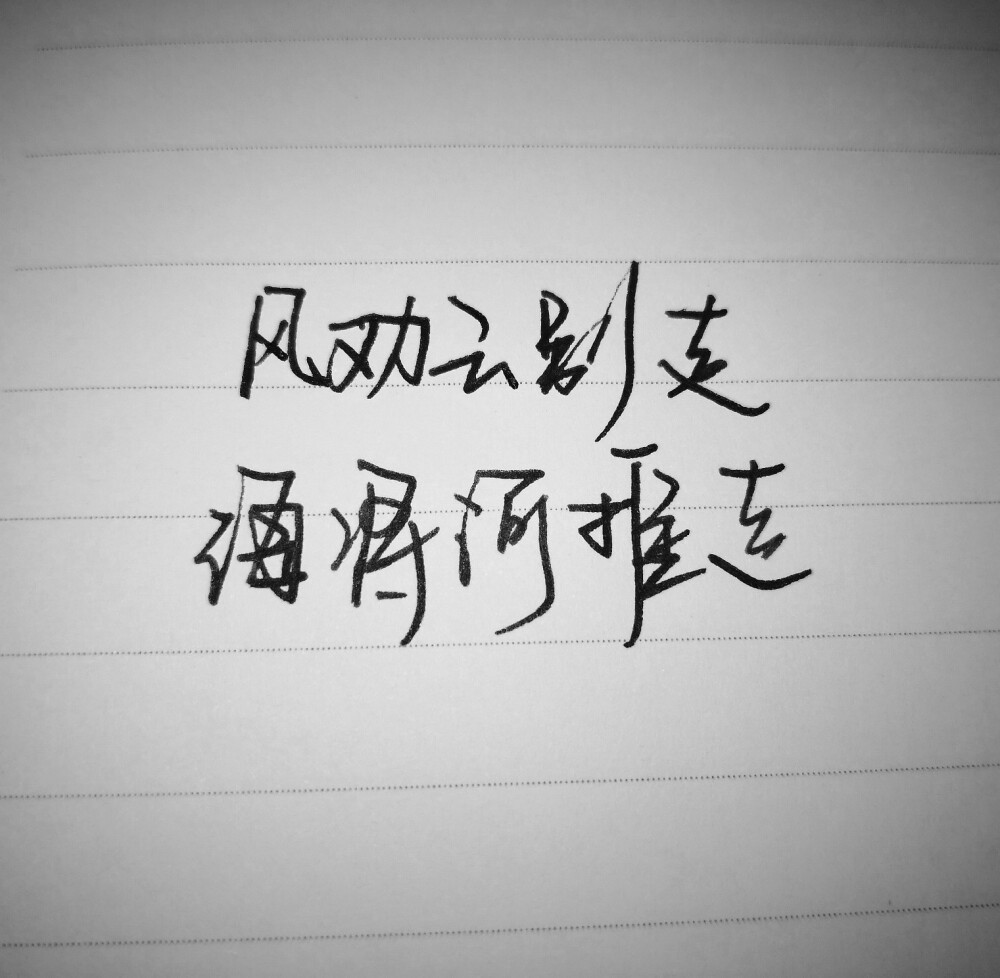 风劝云别走
海将河推走